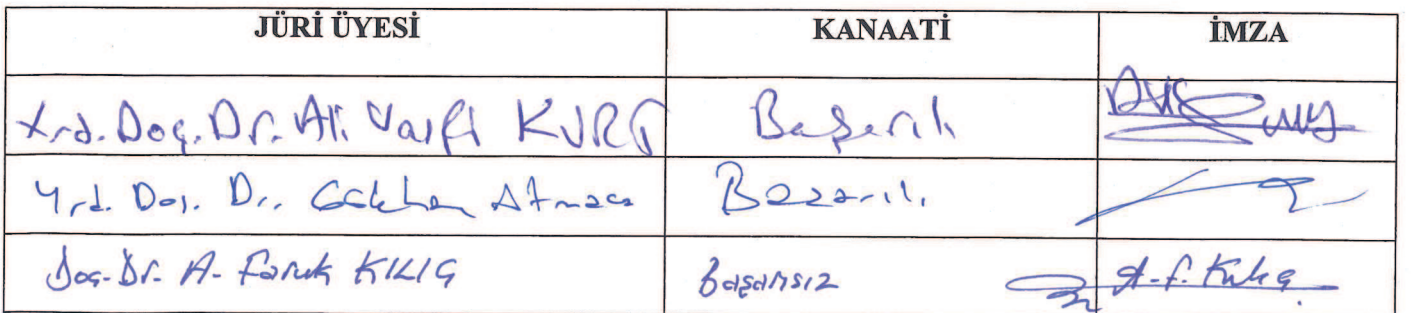 JÜRİ ÜYESİ KANAATİ İMZA
Yrd. Doç. Dr. Ali Vasfi KURT Başarılı
Yrd. Doç. Dr. Gökhan Atmaca Başarılı
Doç. Dr. A. Faruk KILIÇ başarısız A.F. Kılıç